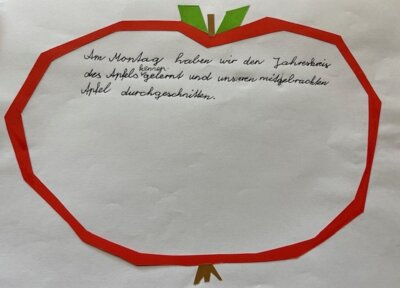 Am Montag haben wir den Jahreskreis
des Apfels kennengelernt und unseren mitgebrachten
Apfel durchgeschnitten.